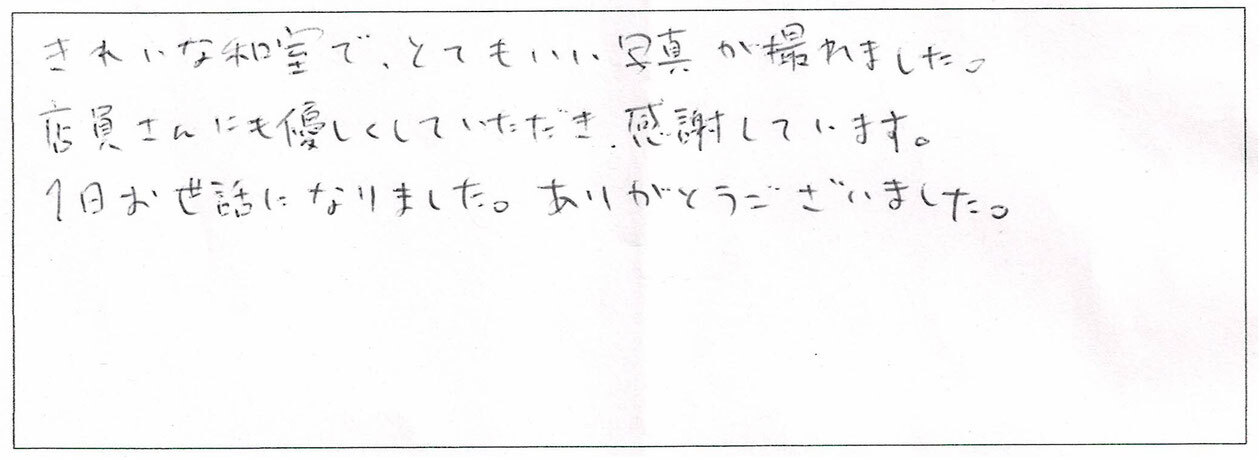 きれいな和室で、とてもいい写真が撮れました。
店員さんにも優しくしていただき、感謝しています。
1日お世話になりました。ありがとうございました。